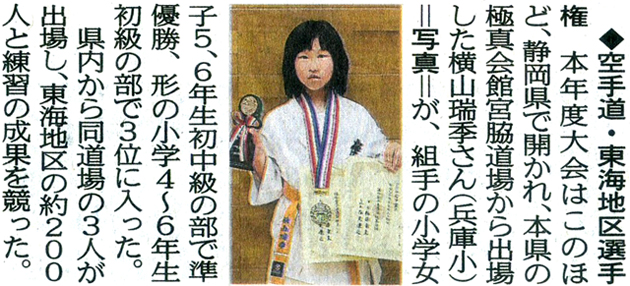 ◆空手道・東海地区選手
権　本年度大会はこのほ
ど、静岡県で開かれ、本県の
極真会館宮脇道場から出場
した横山瑞季さん(兵庫小)
＝写真＝が、組手の小学女
子5、6年生初中級の部で準
優勝、形の小学4〜6年生
初級の部で3位に入った。
県内から同道場の3人が
出場し、東海地区の約200
人と練習の成果を競った。